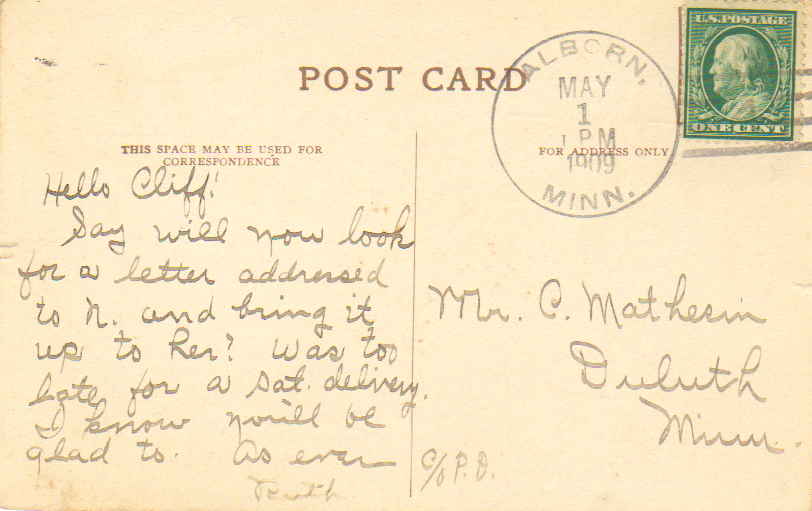 POST CARD
THIS SPACE MAY BE USED FOR
CORRESPONDENCE
FOR ADDRESS ONLY
ALBORN,
MAY
1
1 PM
1909
MINN.
U.S. POSTAGE
ONE CENT
Hello Cliff!
Say will you look
for a letter addressed
to N. and bring it
up to her? Was too
late for a Sat. delivery.
I know you'll be
glad to. As ever
Ruth
Mr. C. Mathesin
Duluth
Minn.
c/o P.O.